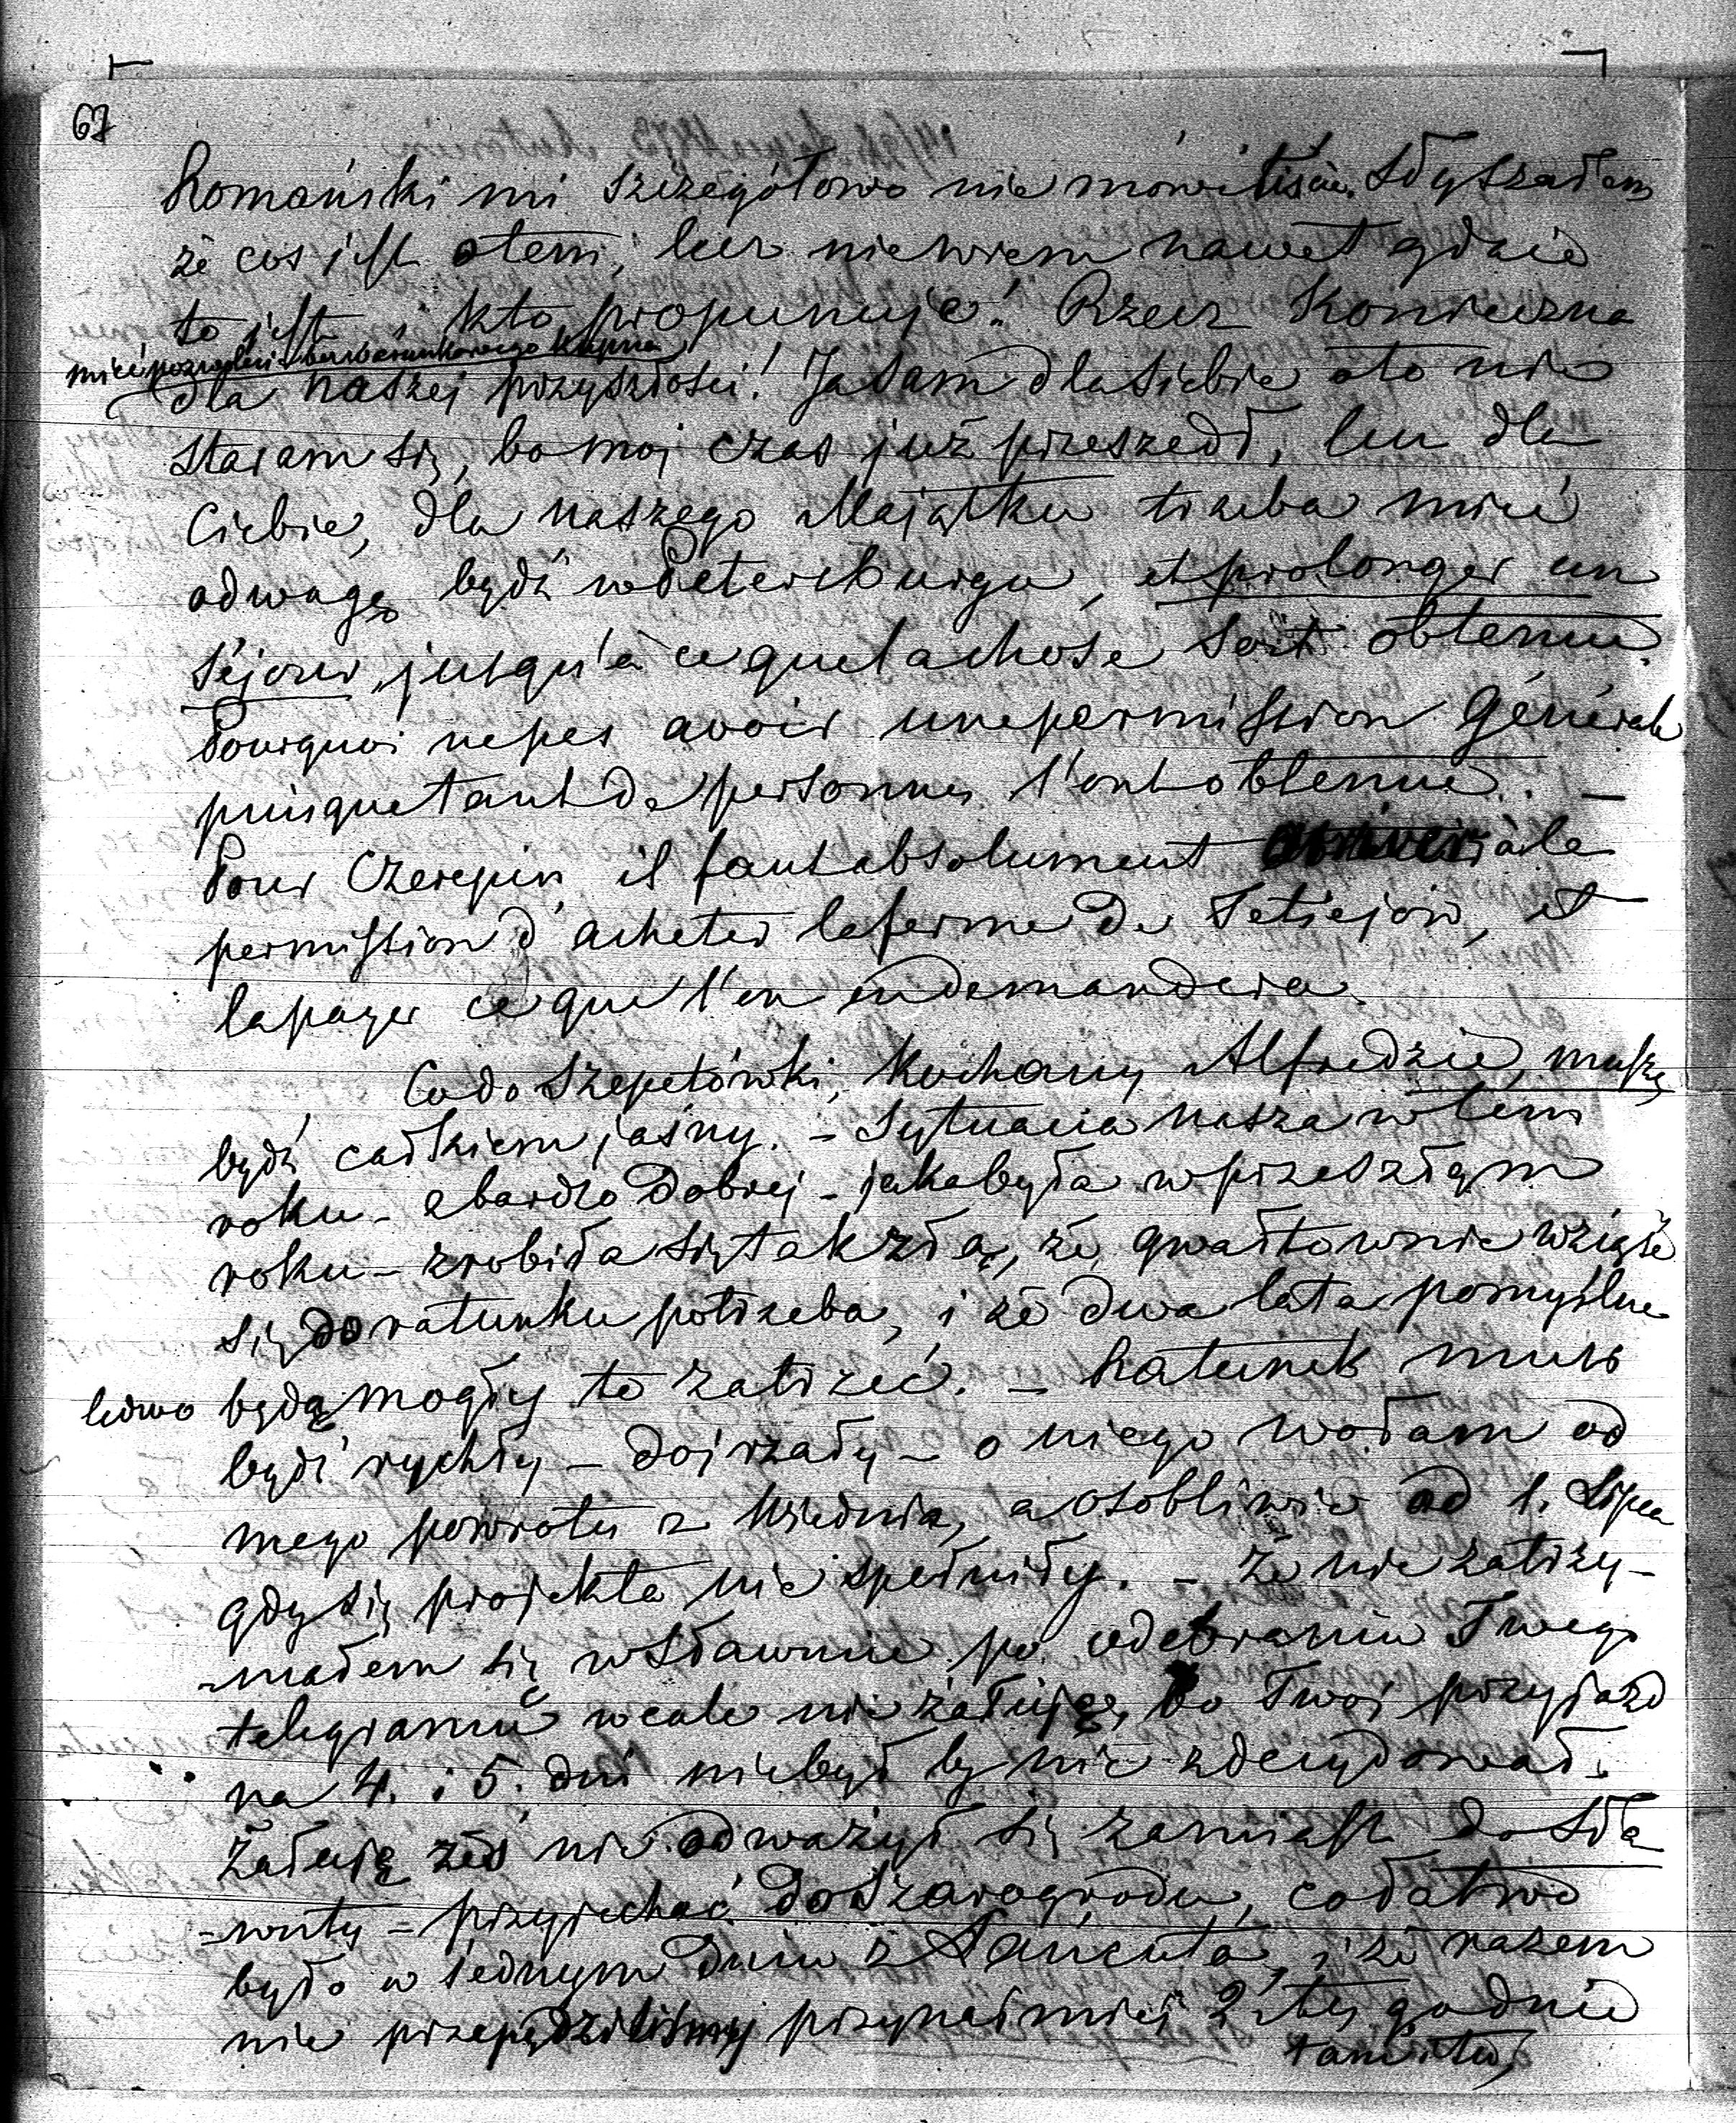 67
Romański mi szczegółowo nie mówił. Słyszałem
że coś jest o tem, lecz nie wiem nawet gdzie
to jest i kto proponuje! Rzecz konieczna
mieć pozwoleni bezwarunkowego kupna
dla naszej przyszłości! Ja sam dla siebie o to nie
staram się, bo moj czas już przeszedł, lecz dla
Ciebie, dla naszego Majątku trzeba mieć
odwagę bydź w Petersburgu, et prolonger un
séjour, jusqu'à ce que la chose soit obtenue.
Pourquoi ne pas avoir une permission générale
puisque tant de personnes l'ont obtenue. –
Pour Czerepin il faut absolument à la
permission d'acheter la ferme de Tetiejow, et
la payer ce que l'on en demandera.
Co do Szepetówki, kochany Alfredzie, muszę
bydź całkiem jaśny. – Sytuacia nasza w tem
roku – z bardzo dobrej – jaka była w przeszłym
roku – zrobiła się tak złą, że gwałtownie wziąść
się do ratunku potrzeba, i że dwa lata pomyślne
ledwo będą mogły to zatrzeć. – Ratunek musi
bydź rychły – dojrzały – o niego wołam od
mego powrotu z Wiednia, a osobliwie od 1. Lipca
gdy się projekta nie spełniły. – Że nie zatrzy-
-małem się w Sławucie po odebraniu Twego
telegramu wcale nie żałuję, bo Twoj przyjazd
na 4. i 5. dni nie był by nic zdecydował.
Żałuję żeś nie odważył się zamiast do Sła
=wuty = przyjechać do Szarogrodu, co łatwo
było w jednym dniu z Łańcuta, i że razem
nie przepędziliśmy przynajmniej 2 tygodnie
tam i tu